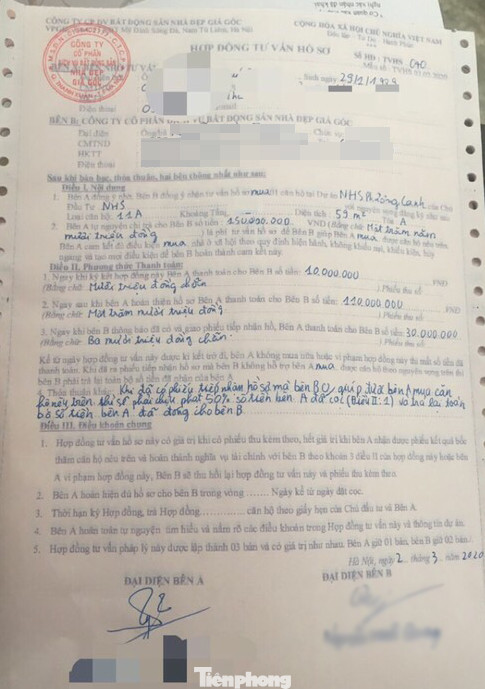 CÔNG TY CP DV BẤT ĐỘNG SẢN NHÀ ĐẸP GIÁ GỐC
CỘNG HÒA XÃ HỘI CHỦ NGHĨA VIỆT NAM
Nam Từ Liêm, Hà Nội
Độc lập - Tự Do - Hạnh Phúc
CÔNG TY
CỔ PHẦN
DỊCH VỤ BẤT ĐỘNG SẢN
NHÀ ĐẸP
GIÁ GỐC
HỢP ĐỒNG TƯ VẤN HỒ SƠ
Sinh ngày
Điện thoại
BÊN B: CÔNG TY CỔ PHẦN DỊCH VỤ BẤT ĐỘNG SẢN NHÀ ĐẸP GIÁ GỐC
Đại diện
CMTND
HKTT
Điện thoại
Sau khi bàn bạc, thỏa thuận, hai bên thống nhất như sau:
Điều I. Nội dung
1. Bên A đồng ý nhờ, Bên B đồng ý nhận tư vấn hồ sơ mua 01 căn hộ tại Dự án NHS Phương Canh của Chủ
Đầu Tư NHS
Loại căn hộ: 11A Khoảng Tầng Diện tích: 59 m² Tòa A
2. Bên A tự nguyện chi trả cho Bên B số tiền: 150.000.000 VNĐ (Bằng chữ: Một trăm năm
mươi triệu đồng) là phí tư vấn hồ sơ để Bên B giúp Bên A mua được căn hộ nêu trên.
Bên A cam kết đủ điều kiện mua nhà ở xã hội theo quy định hiện hành, không khiếu nại, khiếu kiện, hủy
ngang và tạo mọi điều kiện để bên B hoàn thành cam kết này.
Điều II. Phương thức Thanh toán:
1. Ngay khi ký kết hợp đồng này Bên A thanh toán cho Bên B số tiền: 10.000.000 VNĐ
(Bằng chữ: Mười triệu đồng chẵn) Phiếu thu số
2. Ngay sau khi bên A hoàn thiện hồ sơ Bên A thanh toán cho Bên B số tiền: 110.000.000
(Bằng chữ: Một trăm mười triệu đồng) Phiếu thu số
3. Ngay khi bên B thông báo đã có và giao phiếu tiếp nhận hồ, Bên A thanh toán cho Bên B số tiền: 30.000.000
(Bằng chữ: Ba mươi triệu đồng chẵn.) Phiếu thu số
Kể từ ngày hợp đồng tư vấn này được kí kết trở đi, bên A không mua nữa hoặc vi phạm hợp đồng này thì mất số tiền đã
thanh toán. Khi đã ra phiếu tiếp nhận hồ sơ mà bên B không hỗ trợ bên A mua được căn hộ theo nguyện vọng trên thì
bên B phải trả lại toàn bộ số tiền đã nhận của bên A.
4. Thỏa thuận khác: Khi đã có phiếu tiếp nhận hồ sơ mà bên B ko giúp được bên A mua căn
hộ này trên thì sẽ phải chịu phạt 50% số tiền bên A đã cọc (Điều II: 1) và trả lại toàn
bộ số tiền bên A đã đóng cho bên B.
Điều III. Điều khoản chung
1. Hợp đồng tư vấn hồ sơ này có giá trị khi có phiếu thu kèm theo, hết giá trị khi bên A nhận được phiếu kết quả bốc
thăm căn hộ nêu trên và hoàn thành nghĩa vụ tài chính với bên B theo khoản 3 điều II của hợp đồng này hoặc bên
A vi phạm hợp đồng này, Bên B sẽ thu hồi lại hợp đồng tư vấn này và phiếu thu kèm theo
2. Bên A hoàn thiện đủ hồ sơ cho bên B trong vòng ........ Ngày kể từ ngày đặt cọc.
3. Thời hạn ký Hợp đồng, trả Hợp đồng............ căn hộ theo giấy hẹn của Chủ đầu tư và Bên A.
4. Bên A hoàn toàn tự nguyện tìm hiểu và nắm rõ các điều khoản trong Hợp đồng tư vấn này và thông tin dự án.
5. Hợp đồng tư vấn pháp lý này được lập thành 03 bản và có giá trị như nhau. Bên A giữ 01 bản, bên B giữ 02 bản./.
Hà Nội, ngày 2 tháng 3 năm 2020
ĐẠI DIỆN BÊN A
ĐẠI DIỆN BÊN B
Tiênphong